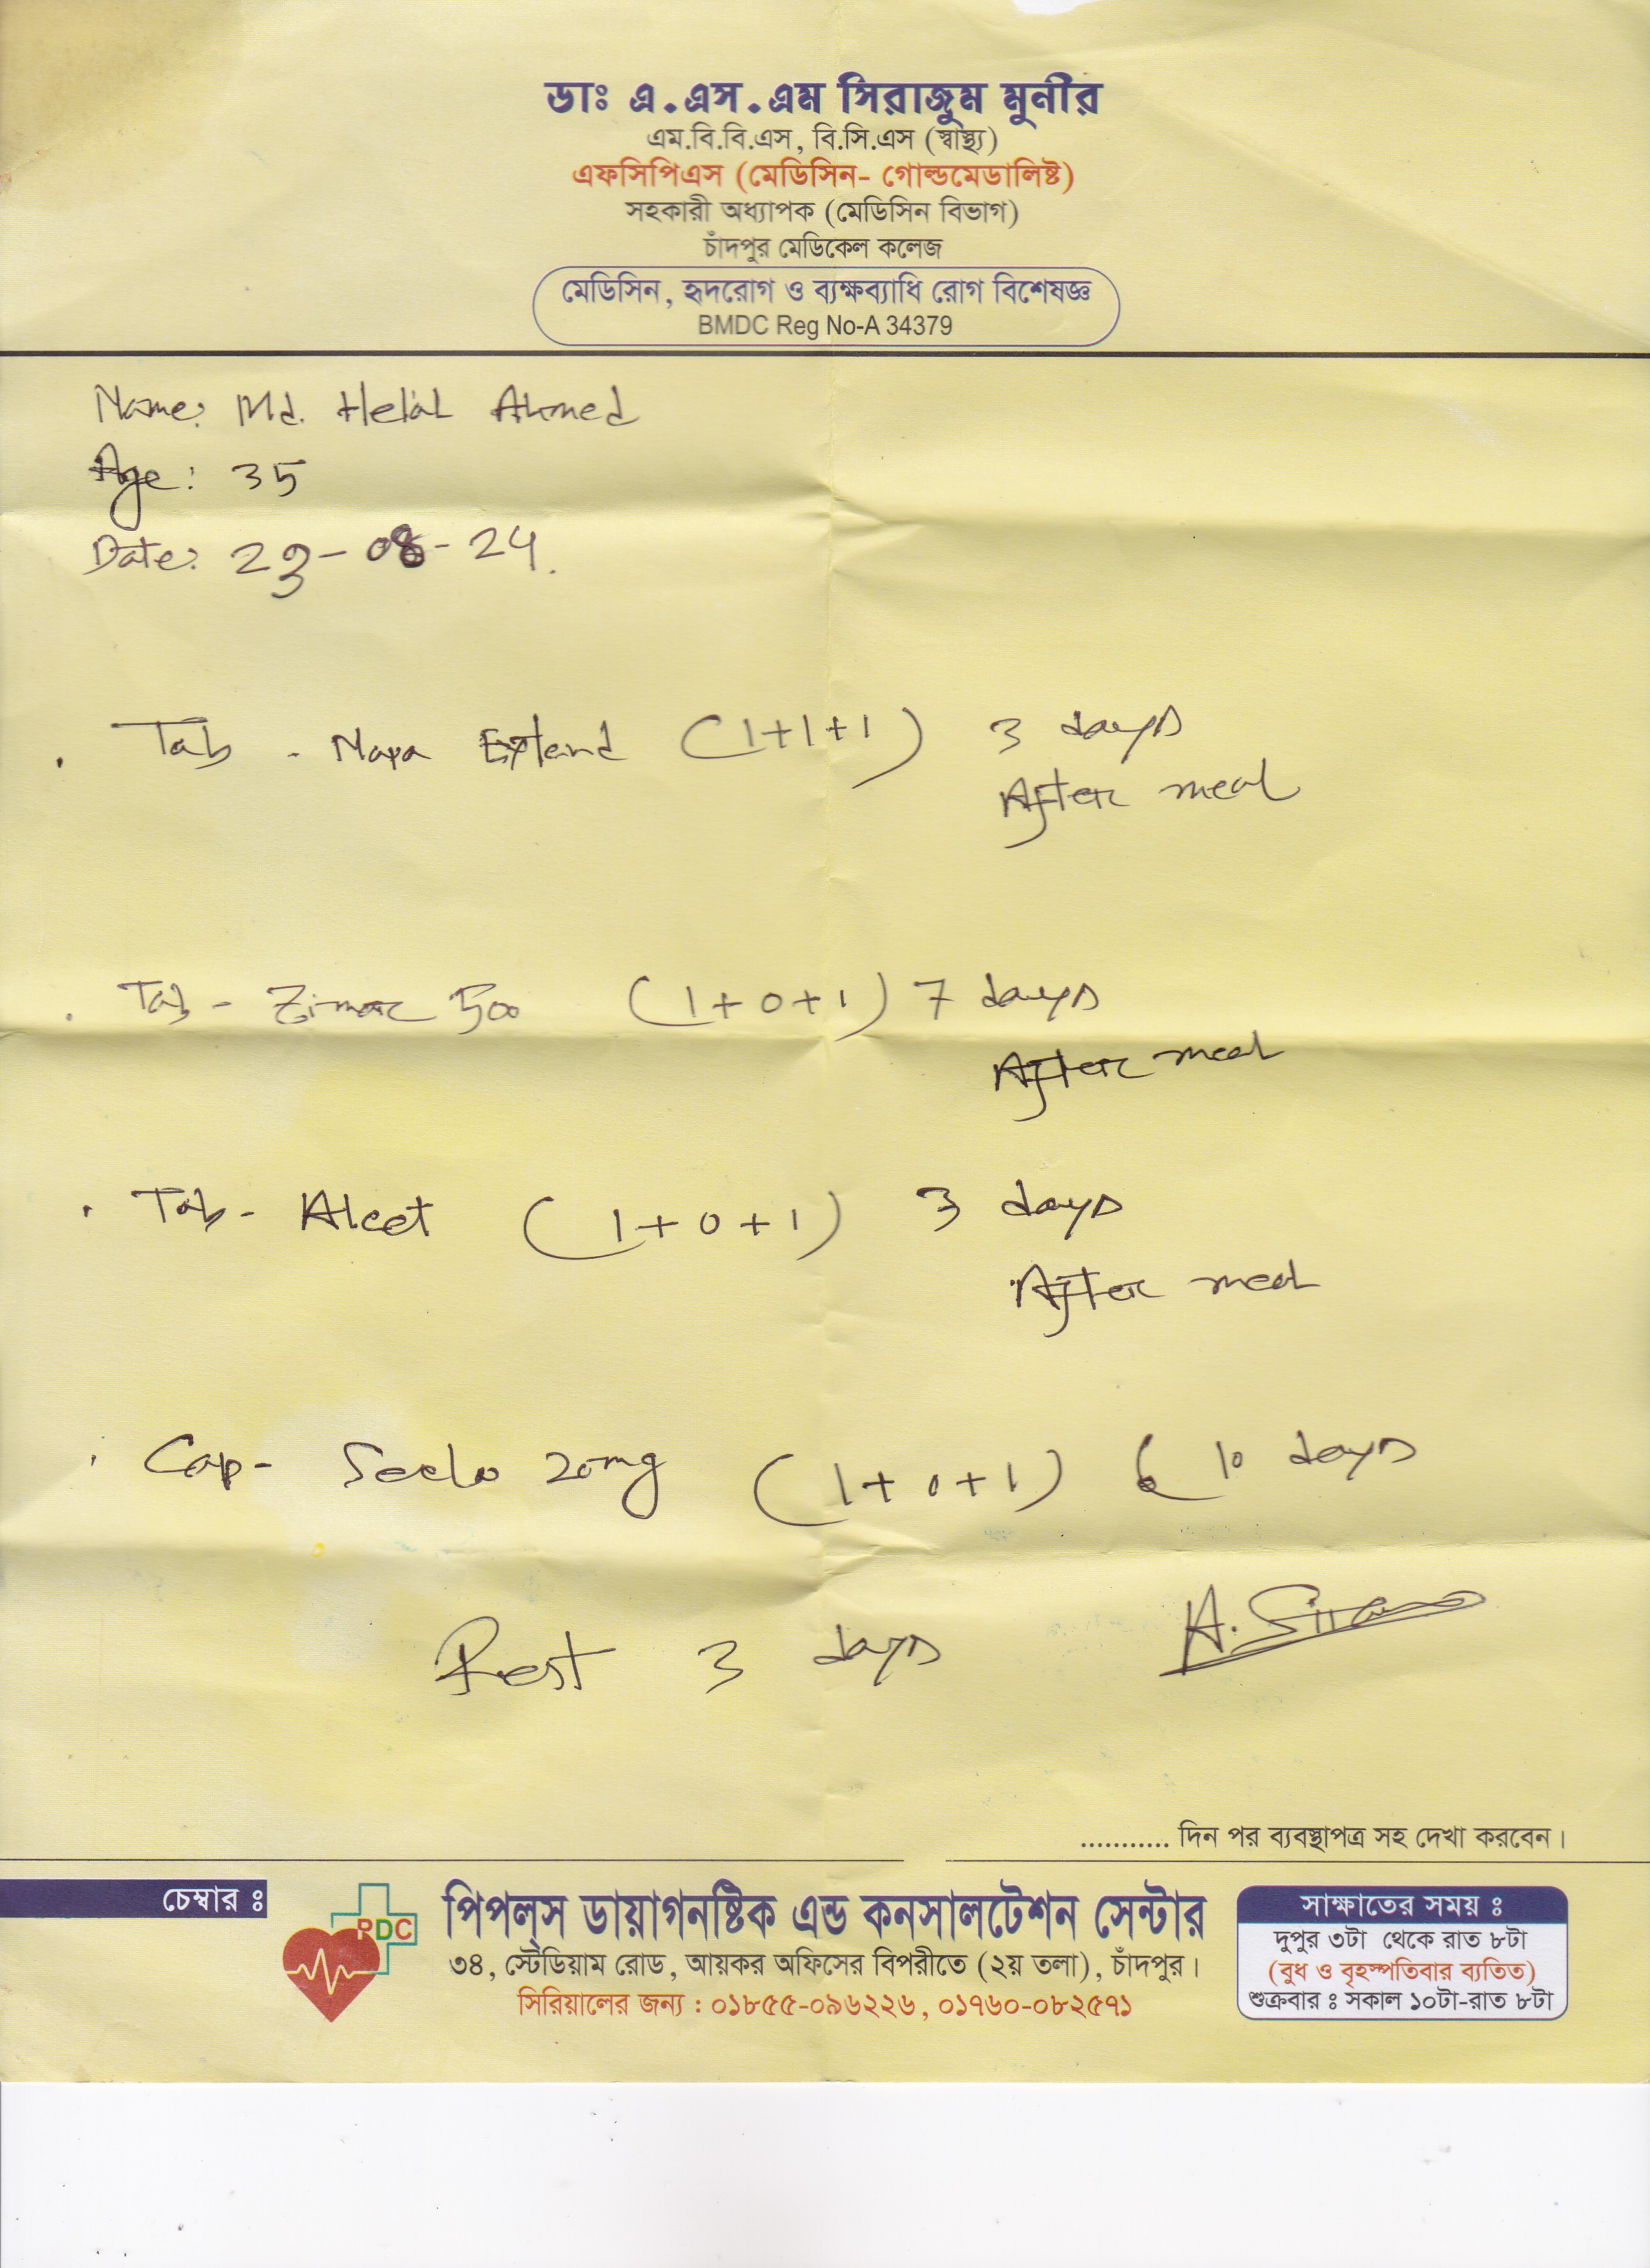 ডাঃ এ.এস.এম সিরাজুম মুনীর
এম.বি.বি.এস, বি.সি.এস (স্বাস্থ্য)
এফসিপিএস (মেডিসিন- গোল্ডমেডালিষ্ট)
সহকারী অধ্যাপক (মেডিসিন বিভাগ)
চাঁদপুর মেডিকেল কলেজ
মেডিসিন, হৃদরোগ ও ব্যক্ষব্যাধি রোগ বিশেষজ্ঞ
BMDC Reg No-A 34379
Name: Md. Helal Ahmed
Age: 35
Date: 23-08-24.
Tab - Napa Extend (1+1+1) 3 days
After meal
Tab - Zimac 500 (1+0+1) 7 days
After meal
Tab - Alcet (1+0+1) 3 days
After meal
Cap - Seclo 20mg (1+0+1) 10 days
Rest 3 days
........... দিন পর ব্যবস্থাপত্র সহ দেখা করবেন।
চেম্বার ঃ
PDC
পিপল্স ডায়াগনষ্টিক এন্ড কনসালটেশন সেন্টার
৩৪, স্টেডিয়াম রোড, আয়কর অফিসের বিপরীতে (২য় তলা), চাঁদপুর।
সিরিয়ালের জন্য : ০১৮৫৫-০৯৬২২৬, ০১৭৬০-০৮২৫৭১
সাক্ষাতের সময় ঃ
দুপুর ৩টা থেকে রাত ৮টা
(বুধ ও বৃহস্পতিবার ব্যতিত)
শুক্রবার ঃ সকাল ১০টা-রাত ৮টা